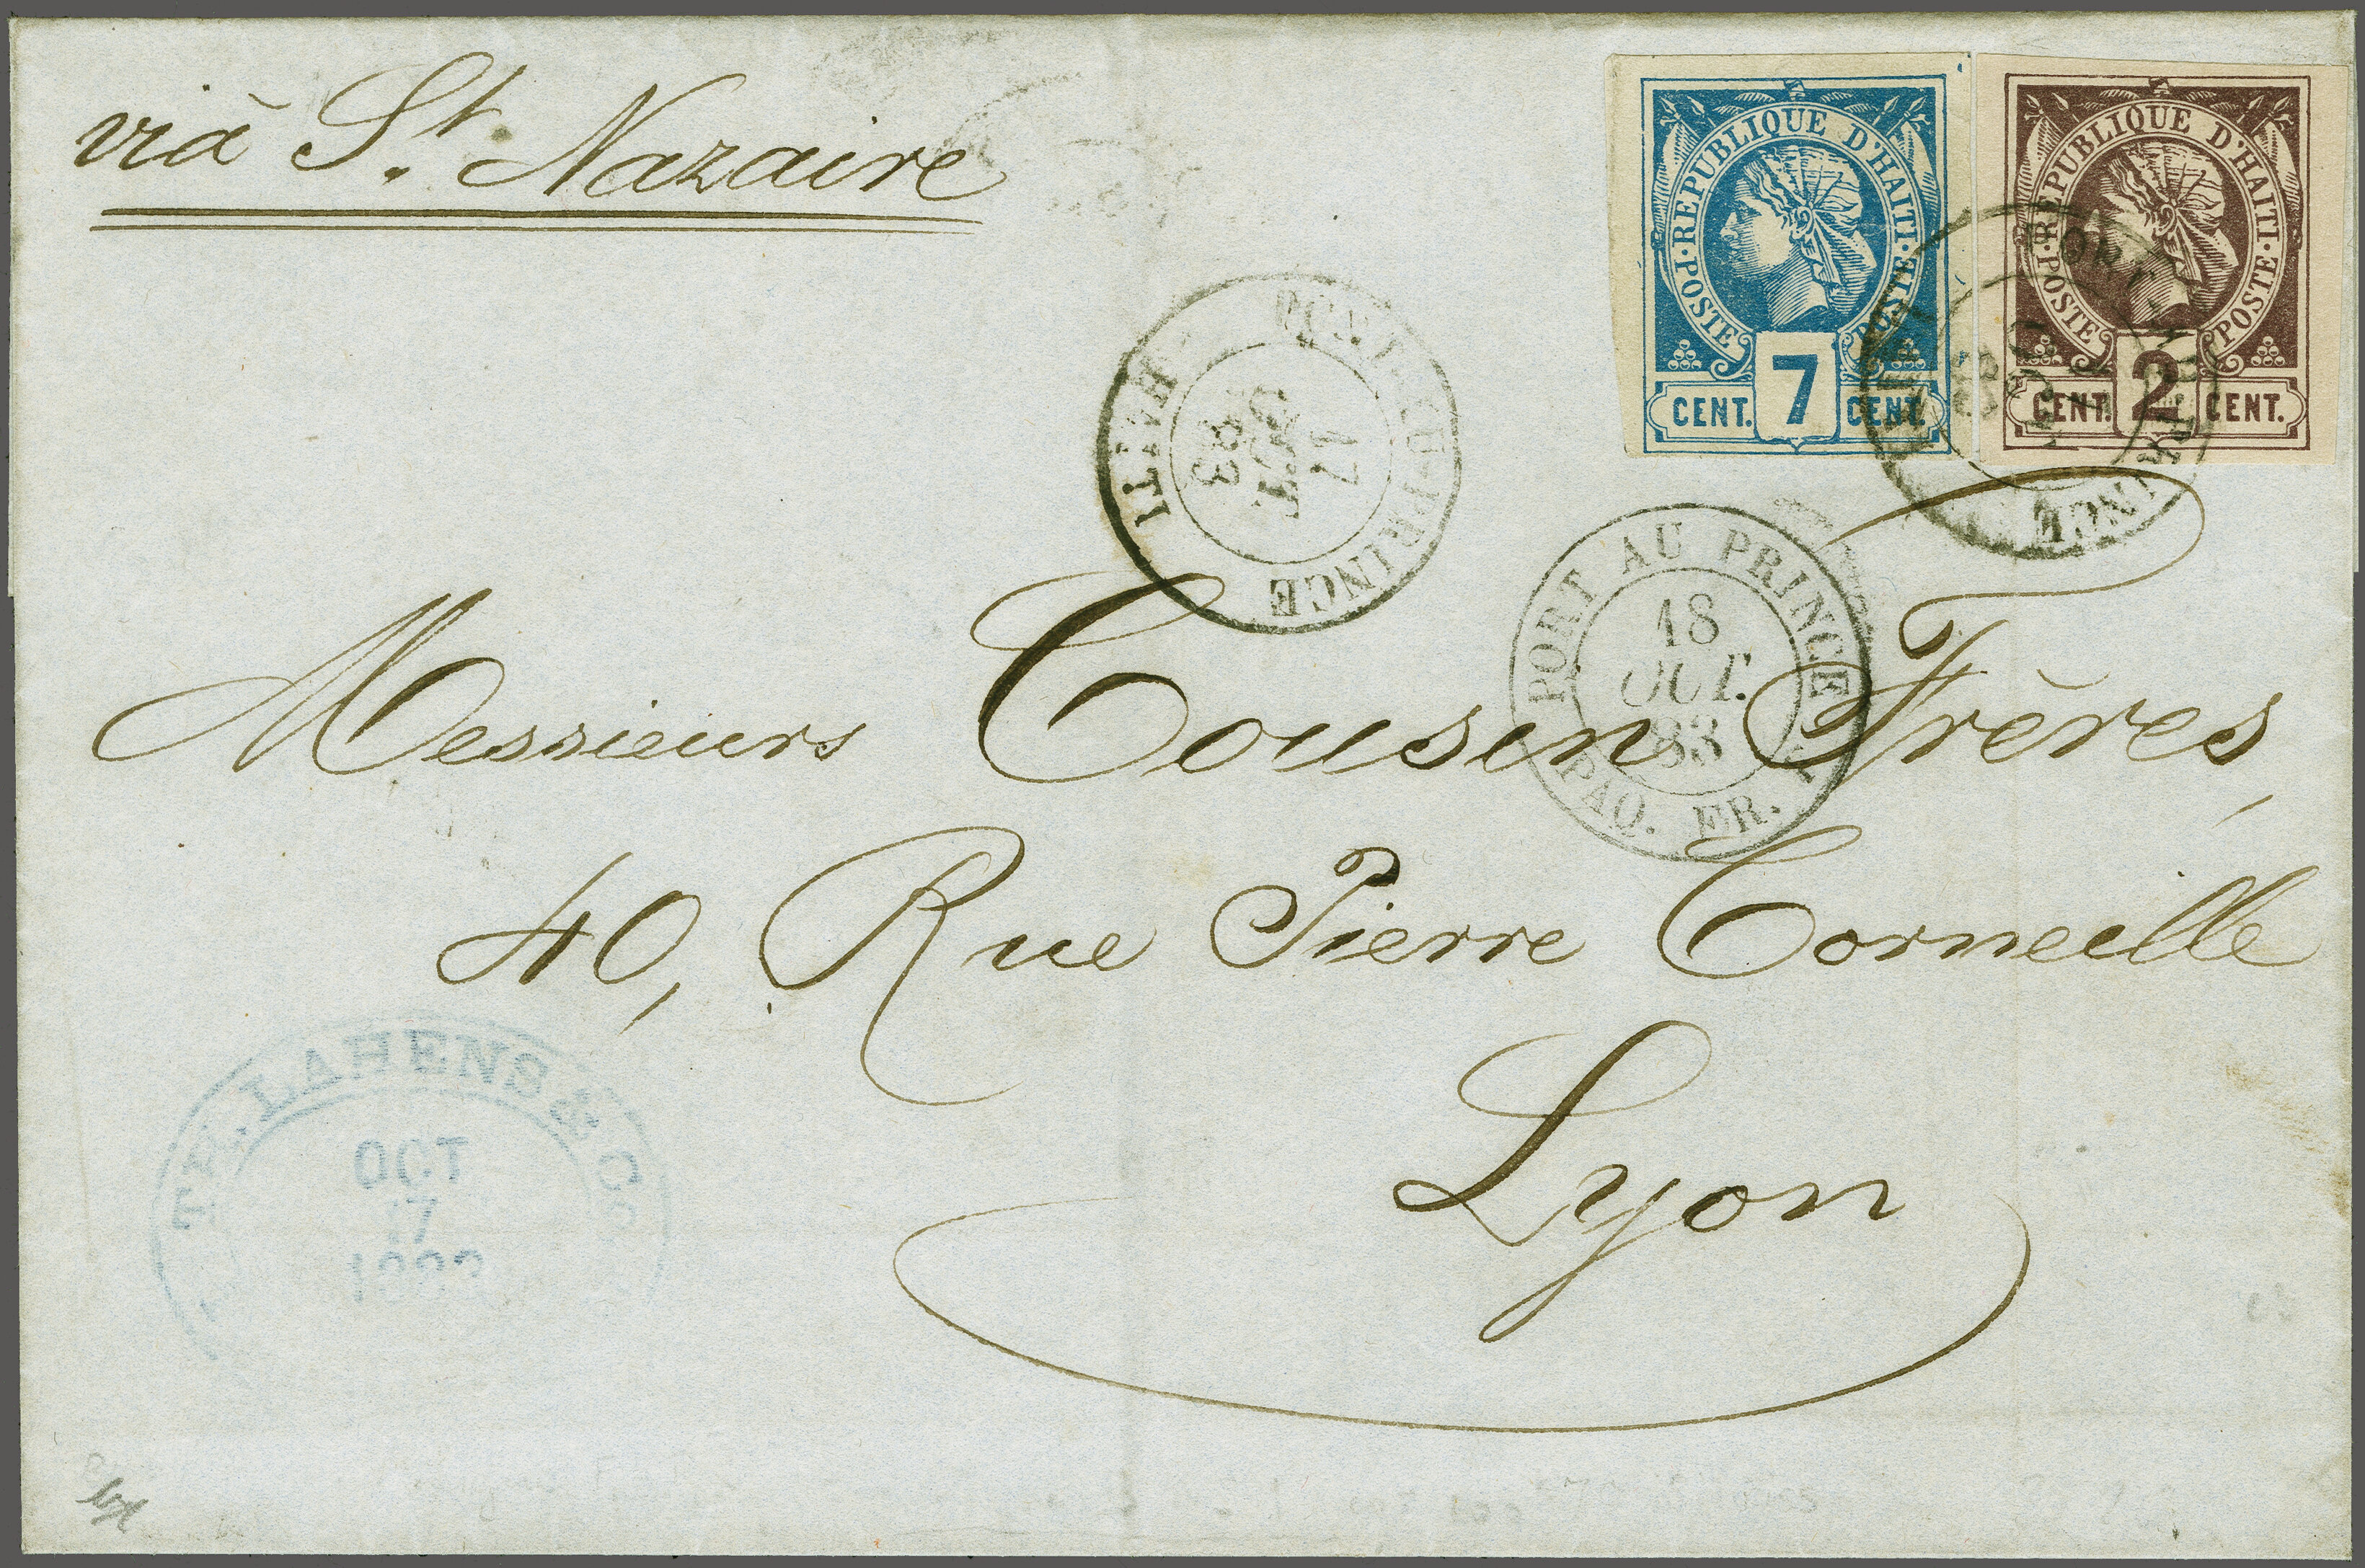 vià St. Nazaire
· POSTE · REPUBLIQUE D'HAITI · POSTE
CENT. 7 CENT.
· POSTE · REPUBLIQUE D'HAITI · POSTE
CENT. 2 CENT.
PORT-AU-PRINCE
17
OCT
83
HAITI
PORT AU PRINCE
18
OCT.
83
PAQ. FR.
Messieurs Cousin Frères,
40, Rue Pierre Corneille
Lyon
LAHENS & Co
OCT
17
1883